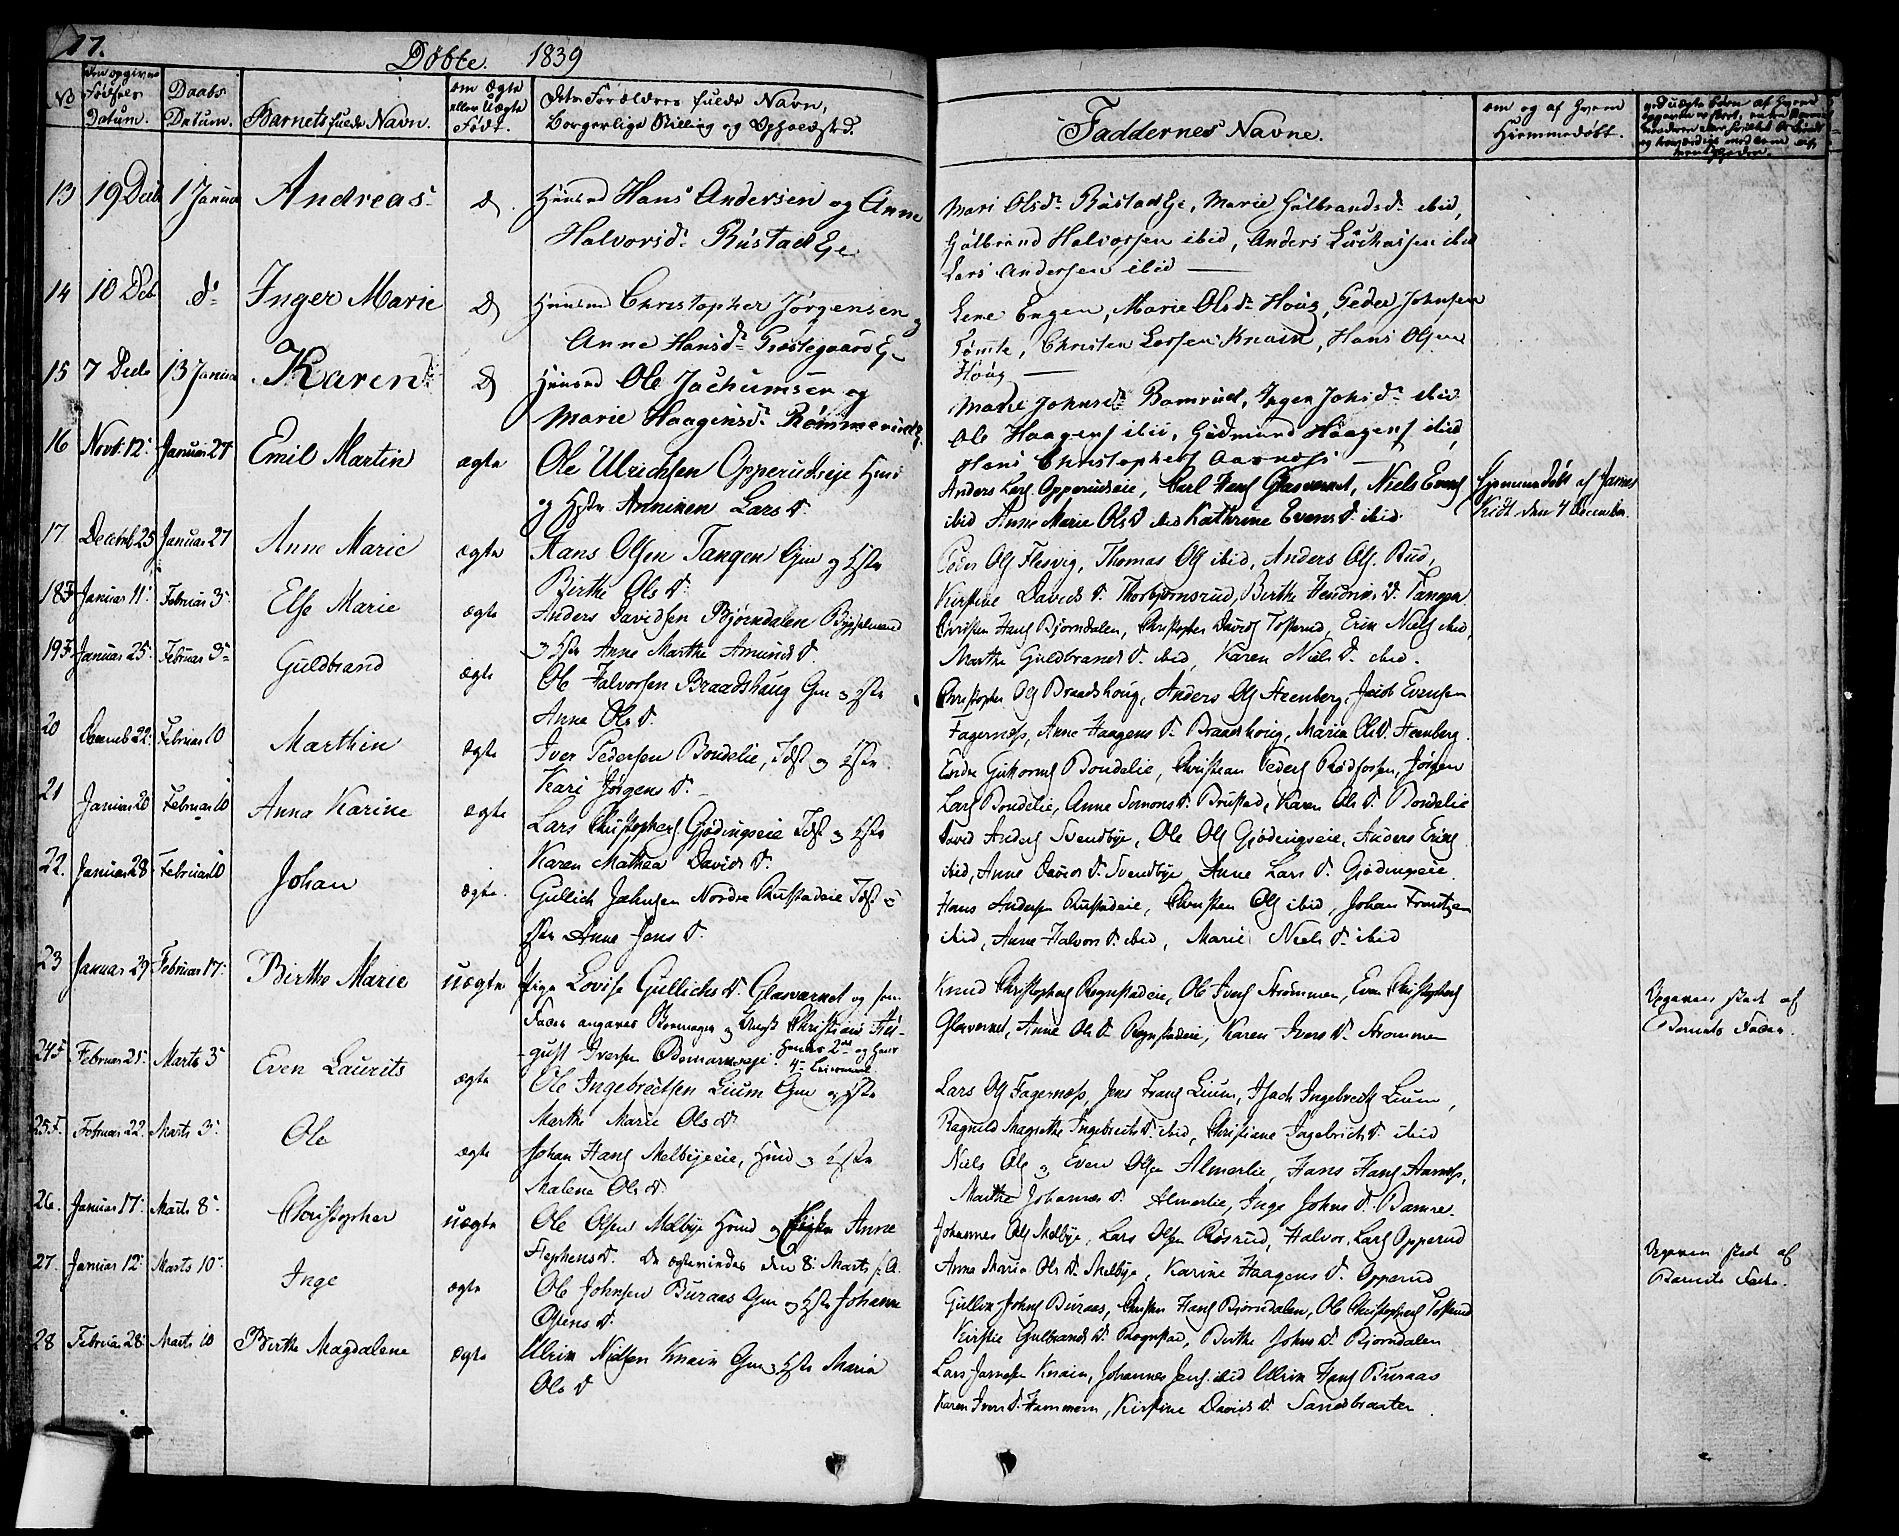 17.
Döbte. 1839
No
Den opgivne Fødsels Datum.
Daabs Datum.
Barnets fulde Navn.
om Ægte eller Uægte Födt.
Forældres fulde Navn,
Borgerlige Stilling og Opholdsted.
Faddernes Navne.
om og af Hvem Hjemmedöbt.
13 19 Decb 1 Januar Andreas D. Huusmd Hans Andersen og Anne
Halvorsd. Rustad Eje
Mari Olsdr. Rustad Eje, Marie Gulbrandsdr. ibid,
Gulbrand Halvorsen ibid, Anders Luchassen ibid
Lars Andersen ibid
14 10 Deb do Inger Marie D Huusmd Christopher Jørgensen og
Anne Hansdr. Præstegaard Ej
Lene Engen, Marie Olsdr. Houg, Peder Johnsen
Tømte, Christen Larsen Knain, Hans Olsen
Houg
15 7 Decb 13 Januar Karen D Huusmd Ole Jachumsen og
Marie Haagensdr. Rømmerud
Marie Johnsdr. Bamrud, Inger Johsdr. ibid
Ole Haagens ibid, Gudmund Haagens ibid,
Hans Christophers Aarnæss
16 Novb. 12. Januar 27 Emil Martin ægte Ole Ulrichsen Opperudseje Huus
og Hstr Anniken Lars D.
Anders Lars. Opperudseie, Carl Hans Glasværket, Niels Evens
ibid Anne Marie Ols D. ibid Kathrine Evens D. ibid.
Hjemmedöbt af
den 4 December
17 Decemb 25 Januar 27 Anne Marie ægte Hans Olsen Tangen Gm og Hstr
Birthe Ols D.
Peder Ols Flesvig, Thomas Ols ibid, Anders Ols. Rud,
Kirstine Davids D. Thorbjørnsrud, Berthe Hendriks D. Tangen.
18 Januar 11. Februar 3. Else Marie ægte Anders Davidsen Bjørndalen Bygselmand
og Hstr Anne Marthe Amunds D.
Christen Hans Bjørndalen, Christopher Davids Tosterud, Erik Niels ibid,
Marthe Guldbrands D. ibid, Karen Niels D. ibid.
19 Januar 25. Februar 3. Guldbrand ægte Ole Halvorsen Braadshaug Gm og Hstr
Anne Ols D.
Christopher Ols Braadshoug, Anders Ols Steenberg, Jacob Evensen
Fagernæss, Anne Haagens D. Braadshoug, Maria Ols D. Steenberg.
20 Decemb 22. Februar 10 Marthin ægte Iver Pedersen Bondelie, Hstr
Kari Jørgens D.
Endre Guttorms Bondelie, Christian Peders Rødfossen, Jörgen
Lars Bondelie, Anne Simons D. Brustad, Karen Ols D. Bondelie
21 Januar 20 Februar 10 Anne Karine ægte Lars Christophers Gjödingseie og Hstr
Karen Mathea Davids D.
David Anders Svendbye, Ole Ols Gjödingseie, Anders Eriks
ibid, Anne Davids D. Svendbye, Anne Lars D. Gjödingseie.
22. Januar 28 Februar 10 Johan ægte. Gullich Johnsen Nordre Rustadeie
Hstr Anne Jens D.
Hans Andersen Rustadeie, Christen Ols ibid, Johan Frantzen
ibid, Anne Halvors D. ibid, Marie Niels D. ibid
23 Januar 29 Februar 17. Birthe Marie uægte Pige Lovise Gullichs D. Glasværket og som
Fader angaves Christian Au-
gust Iversen
Knud Christophers Rognstadeie, Ole Ivers Strømmen, Even Christophers
Glasværket, Anne Ols D. Rognstadeie, Karen Ivers D. Strømmen
Opgaven skeet af
Barnets Fader.
24 Februar 21. Marts 3. Even Laurits ægte Ole Ingebretsen Lium Gm og Hstr
Marthe Marie Ols D.
Lars Ols Fagernæss, Jens Frans Lium, Isach Ingebrets Lium,
Ragnild Magrethe Ingebrets D. ibid, Christiane Ingebrets D. ibid
25 Februar 22. Marts 3. Ole ægte Johan Hans Melbyeeie, Huusmd og Hstr
Malene Ols D.
Niels Ols og Even Olsen Almerlie, Hans Hans Aarnæss,
Marthe Johannes D. Almerlie, Inge Johns D. Bamre.
26. Januar 17. Marts 8. Christopher uægte Ole Olsen Melbye Huusmd og Anne
Stephens D. De ægteviedes den 8. Marts s. A.
Johannes Ols Melbye, Lars Olsen Rösrud, Halvor Lars Opperud
Anne Maria Ols D. Melbye, Karine Haagens D. Opperud
Opgaven skeet af
Barnets Fader.
27. Januar 12. Marts 10. Inge ægte Ole Johnsen Buraas Gm og Hstr Johanne
Olsens D.
Gullik Johns Buraas, Christen Hans Bjørndalen, Ole Christophers Tosterud
Kirstie Gulbrands D. Rognstad, Birthe Johns D. Bjørndalen
28 Februar 28. Marts 10 Birthe Magdalene ægte Ulrik Nielsen Knain Gm og Hstr Maria
Ols D
Lars Jansen Knain, Johannes Jens. ibid Ulrik Hans Buraas
Karen Ivers D. Hammern, Kirstine Davids D. Sandbraaten